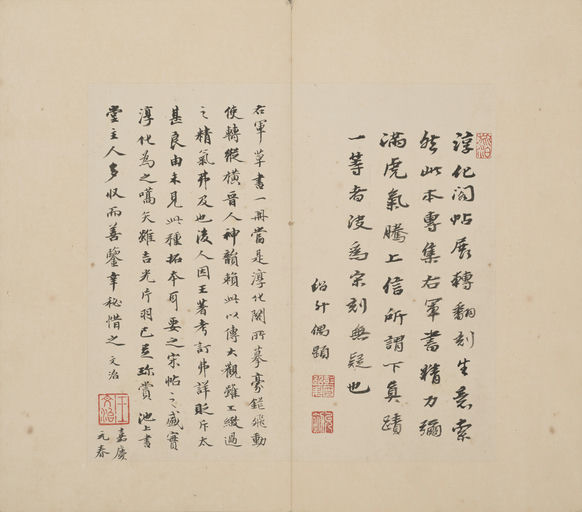 淳化閣帖展轉翻刻生意索
然此本專集右軍書精力彌
滿虎氣騰上信所謂下真蹟
一等者決為宋刻無疑也
偶題
右軍草書一冊當是淳化閣所摹豪鋩飛動
使轉縱橫晉人神韻賴此以傳大觀雖工緻過
之精氣弗及也後人因王著考訂弗詳貶斥太
甚良由未見此種拓本耳要之宋帖之盛實
淳化為之嚆矢雖吉光片羽已足珍賞池上書
堂主人多收而善鑒幸秘惜之文治
嘉慶
元春
王
文治